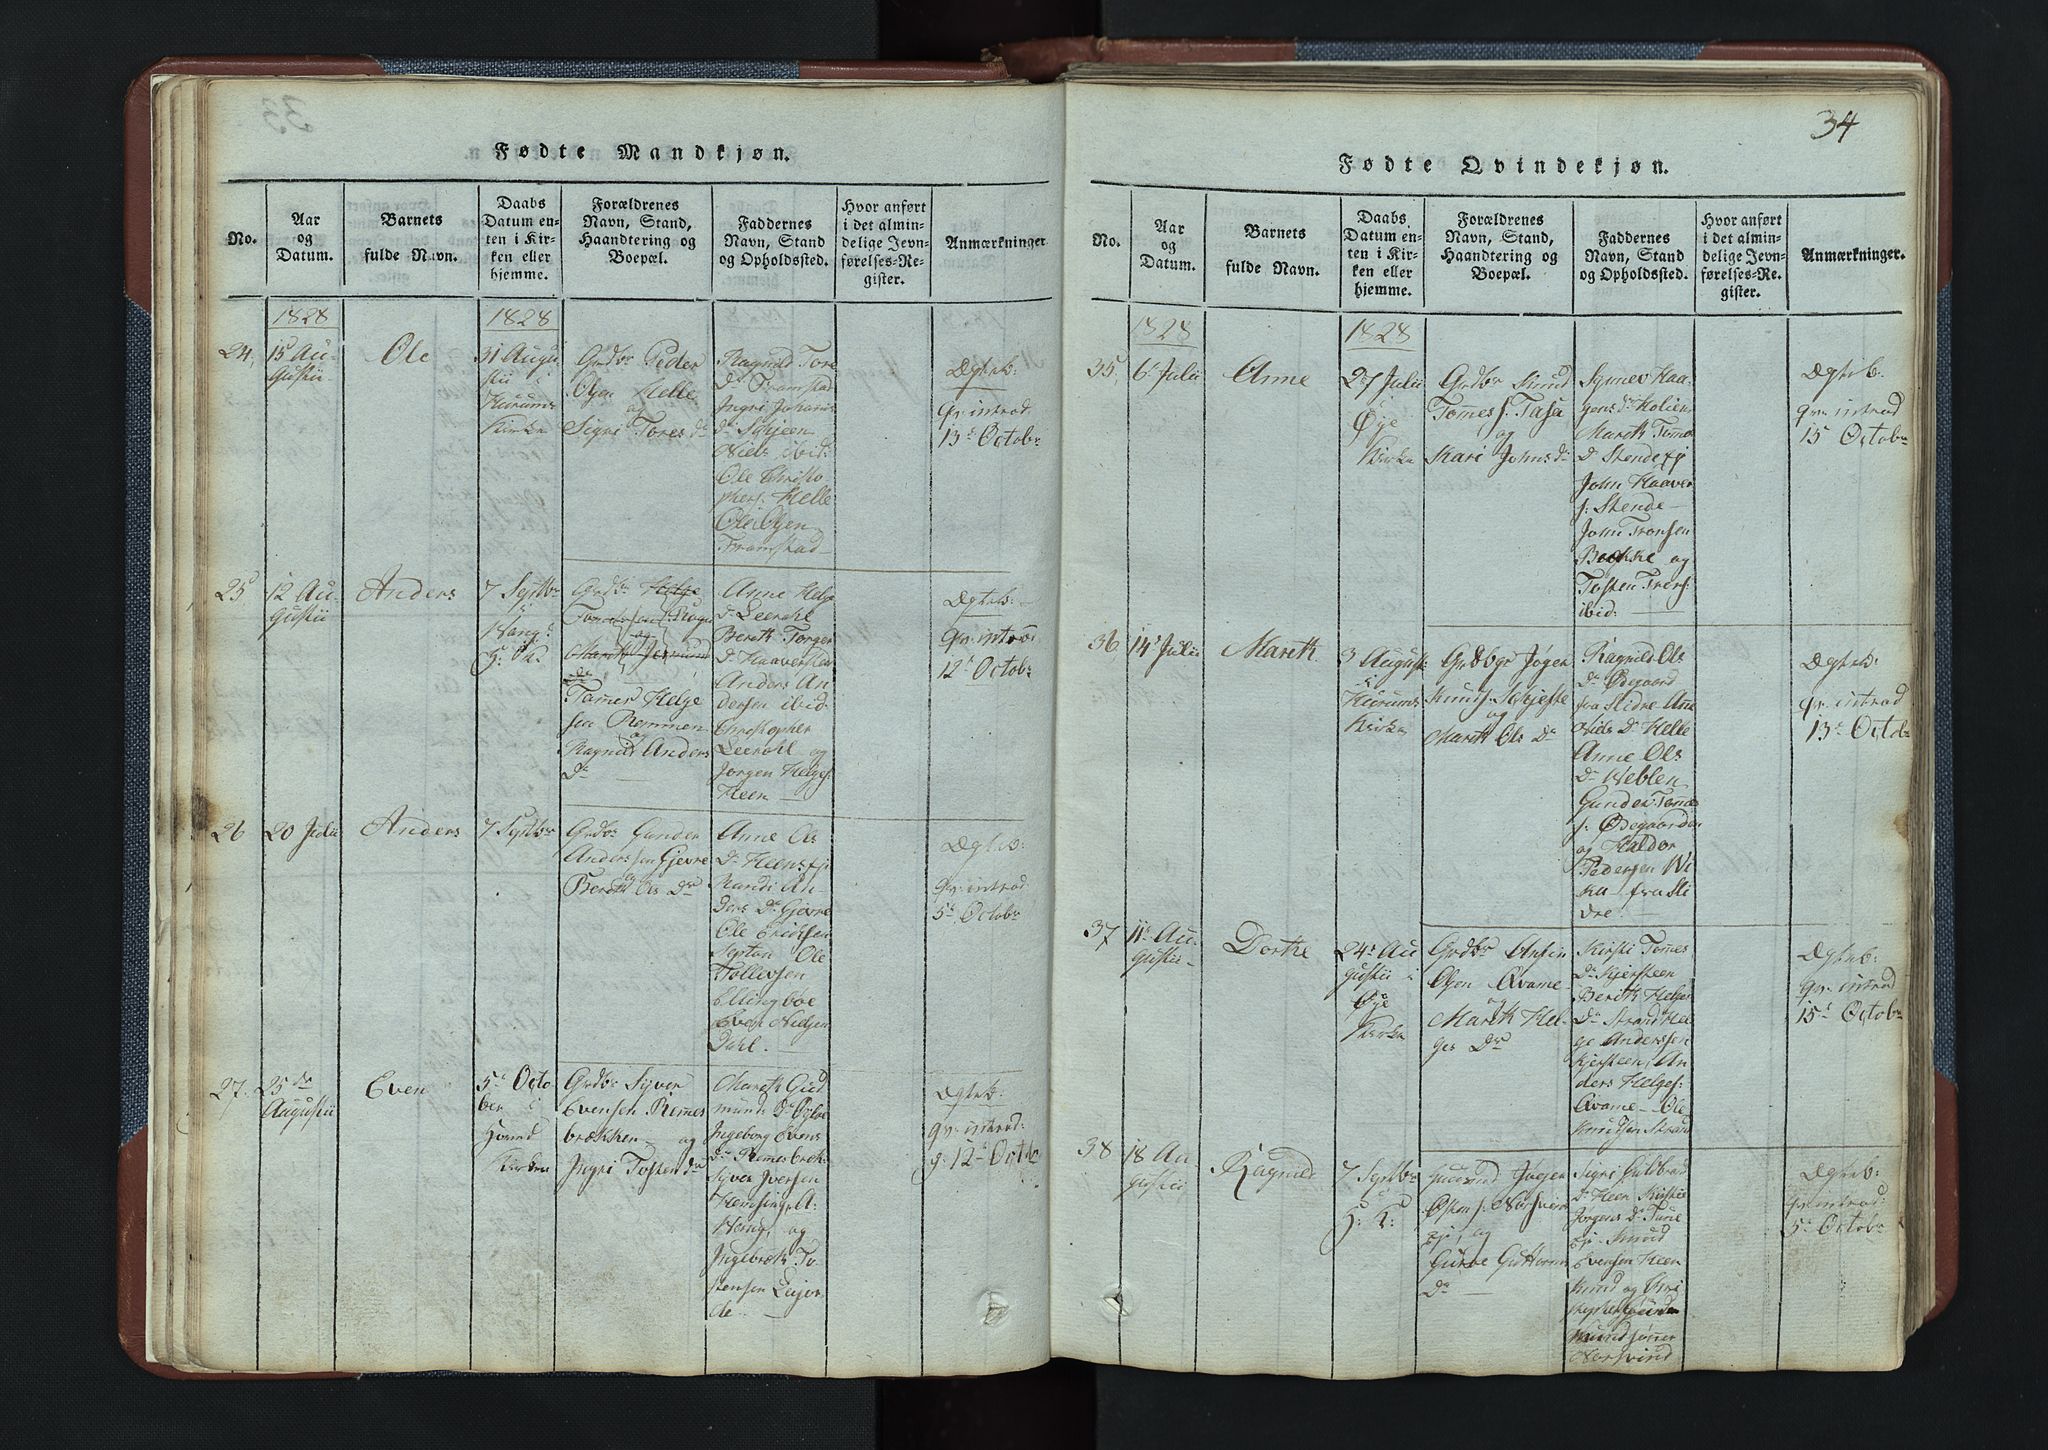 Fødte Mandkjøn.
No.
Aar
og
Datum.
Barnets
fulde Navn.
Daabs
Datum en-
ten i Kir-
ken eller
hjemme.
Forældrenes
Navn, Stand,
Haandtering og
Boepæl.
Faddernes
Navn, Stand
og Opholdssted.
Hvor anført
i det almin-
delige Jevn-
førelses-Re-
gister.
Anmærkninger
1828
1828
24,
15 Au-
gustii
Ole
31 Augu
stii i
Hurums
Kirke
Grdbr Peder
Olsen Helle
og
Sigri Tores Dr
Ragnild Tore
Dr Framstad
Ingri Johans
Dr Skjeen
Niels ibid:
Ole Christo
phers: Helle
Ole Olsen
Framstad
Dgtrb:
qv: introd
13de Octobr
25,
12 Au-
gustii
Anders
7 Septbr
i
Vang:
H: K:
Grdbr Helge
og
Marith
Tamer Helge
sen Remmen
og
Ragnild Anders
Dr
Anne Helge
Dr Leerohl
Berith Torger
Dr Haaversten
Anders An
dersen ibid
Christopher
Leerohl og
Jørgen Helges:
Heen
Dgtrb:
qv: introd:
12te Octobr
26
20 Julii
Anders
7 Septbr
Grdbr Gunder
Anderssen Gjevre
Berith Ols Dr
Anne Ols
Dr Heensej
Randi An
ders Dr Gjevre
Ole Erichsen
Ole
Tollivsen
Ellingbøe
Even Nielsen
Dahl.
Dgtrb:
qv: introd
5te Octobr
27.
25de
Augustii
Even
5te Octo
ber i
Hoved
Kirken
Grdbr Syver
Evensen Remmes
brækken og
Ingri Tosten Dr
Marith Gud
mund: Dr
Ingeborg Evens
Dr Remesbræk
Syver Iversen
Hemsing, A:
og
Ingebreth To
stensen Lejor
de
Dgtrb:
qv: introd:
g: 12te Octbr
34
Fødte Qvindekjøn.
No.
Aar
og
Datum.
Barnets
fulde Navn.
Daabs
Datum en-
ten i Kir-
ken eller
hjemme.
Forældrenes
Navn, Stand,
Haandtering og
Boepæl.
Faddernes
Navn, Stand
og Opholdssted.
Hvor anført
i det almin-
delige Jevn-
førelses-Re-
gister.
Anmærkninger.
1828
1828
35,
6 Julii
Anne
27 Julii
i
Øye
Kirke
Grdbr Knud
Tomes s. Tasa
og
Kari Johns Dr
Synnev Haa-
gens Dr Kolien
Marith Tomes
Dr Stendeej
John Haaver
s: Stende
John Tronsen
Bække og
Tosten Trons:
ibid:
Dgtrb.
qv: introd
15 Octobr
36
14de Julii
Marith
3 August
i
Hurums
Kirke
Grdbgr Jøgen
Knuds. Skjefte
og
Marith Ols Dr
Ragnild Ols
Dr Ødegaard
fra Slidre Anne
Niels Dr Helle
Anne Ols
Dr Weblen
Gunder Tomes
s: Ødegaarden
og Haldor
Pedersen Wi
ka fra Sli
dre
Dgtrb:
qv: introd
13de Octobr
37
11te Au-
gustii
Dorthe
24de Au
gustii i
Øye
Kirke
Grdbr Ansin
Olsen Qvame
og
Marith Hel-
ges Dr
Kirsti Tomes
Dr Kjersteen
Berith Helge
Dr Strand Hel
ge Anderssen
Kjersteen, An
ders Helges:
Qvame Ole
Knudsen Strand
Dgtrb:
qv: introd
15de Octobr
38
18 Au
gustii
Ragnild
7 Septbr
i
H: K:
Østen s.
ej, og
Guroe Guttorms
Dr
Sigri Guldbrand
Dr Heen Kirstie
Jørgens Dr
ej Knud
Evensen Heen
Knud og
Norsvind
Dgtrb:
qv: introd:
5te Octobr